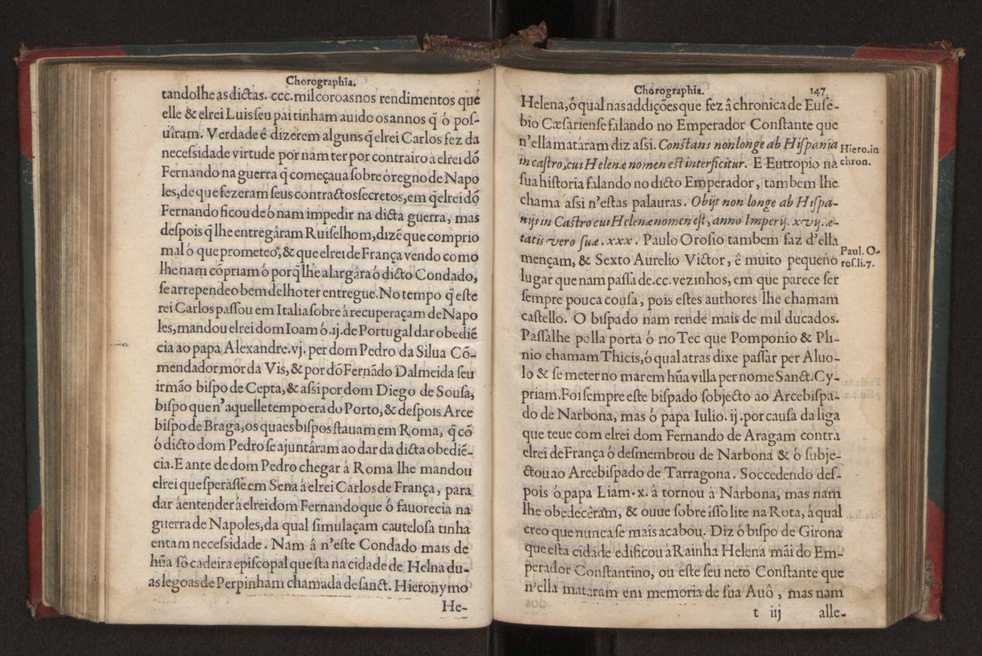 Chorographia.
tandolhe as dictas. ccc. mil coroas nos rendimentos que
elle & elrei Luis seu pai tinham auido os annos q̃ ó pos-
uíram. Verdade é dizerem alguns q̃ elrei Carlos fez da
necessidade virtude por nam ter por contrairo a elrei dõ
Fernando na guerra q̃ começaua sobre ó regno de Napo
les, de que fezeram seus contractos secretos, em q̃ elrei dõ
Fernando ficou de ó nam impedir na dicta guerra, mas
despois q̃ lhe entregâram Ruiselhom, dizẽ que comprio
mal ó que prometeo, & que elrei de França vendo como
lhe nam cõpriam ó porq̃ lhe alargâra ó dicto Condado,
se arrependeo bem de lho ter entregue. No tempo q̃ este
rei Carlos passou em Italia sobre â recuperaçam de Napo
les, mandou elrei dom Ioam ó .ij. de Portugal dar obediẽ
cia ao papa Alexandre .vj. per dom Pedro da Silua Cõ-
mendador mor da Vis, & por dõ Fernãdo Dalmeida seu
irmão bispo de Cepta, & assi por dom Diego de Sousa,
bispo que n'aquelle tempo era do Porto, & despois Arce
bispo de Braga, os quaes bispos stauam em Roma, q̃ cõ
ó dicto dom Pedro se ajuntâram ao dar da dicta obediẽ-
cia. E ante de dom Pedro chegar á Roma lhe mandou
elrei que sperásse em Sena á elrei Carlos de França, para
dar â entender â elrei dom Fernando que ó fauorecia na
guerra de Napoles, da qual simulaçam cautelosa tinha
entam necessidade. Nam â n'este Condado mais de
hũa só cadeira episcopal que sta na cidade de Helna du-
as legoas de Perpinham chamada de sanct. Hieronymo
He-
Chorographia. 147
Helena, ó qual nas addições que fez â chronica de Euse-
bio Cæsariense falando no Emperador Constante que
n'ella mataram diz assi. Constans non longe ab Hispania
in castro, cui Helenæ nomen est interficitur. E Eutropio na
sua historia falando no dicto Emperador, tambem lhe
chama assi n'estas palauras. Obijt non longe ab Hispa-
nijs in Castro cui Helenæ nomen est, anno Imperij. xvij. æ-
tatis vero suæ. xxx. Paulo Orosio tambem faz d'ella
mençam, & Sexto Aurelio Victor, ê muito pequeno
lugar que nam passa de .cc. vezinhos, em que parece ser
sempre pouca cousa, pois estes authores lhe chamam
castello. O bispado nam rende mais de mil ducados.
Passalhe polla porta ó rio Tec que Pomponio & Pli-
nio chamam Thicis, ó qual atras dixe passar per Aluo-
lo & se meter no mar em hũa villa per nome Sanct. Cy-
priam. Foi sempre este bispado sobjecto ao Arcebispa-
do de Narbona, mas ó papa Iulio. ij. por causa da liga
que teue com elrei dom Fernando de Aragam contra
elrei de França ó desmembrou de Narbona & ó subje-
ctou ao Arcebispado de Tarragona. Soccedendo des-
pois ó papa Liam. x. â tornou à Narbona, mas nam
lhe obedecêram, & ouue sobre isso lite na Rota, á qual
creo que nunca se mais acabou. Diz ó bispo de Girona
que esta cidade edificou à Rainha Helena mãi do Em-
perador Constantino, ou este seu neto Constante que
n'ella mataram em memoria de sua Auô, mas nam
t iij alle-
Hiero. in
chron.
Paul. O-
ros. li. 7.